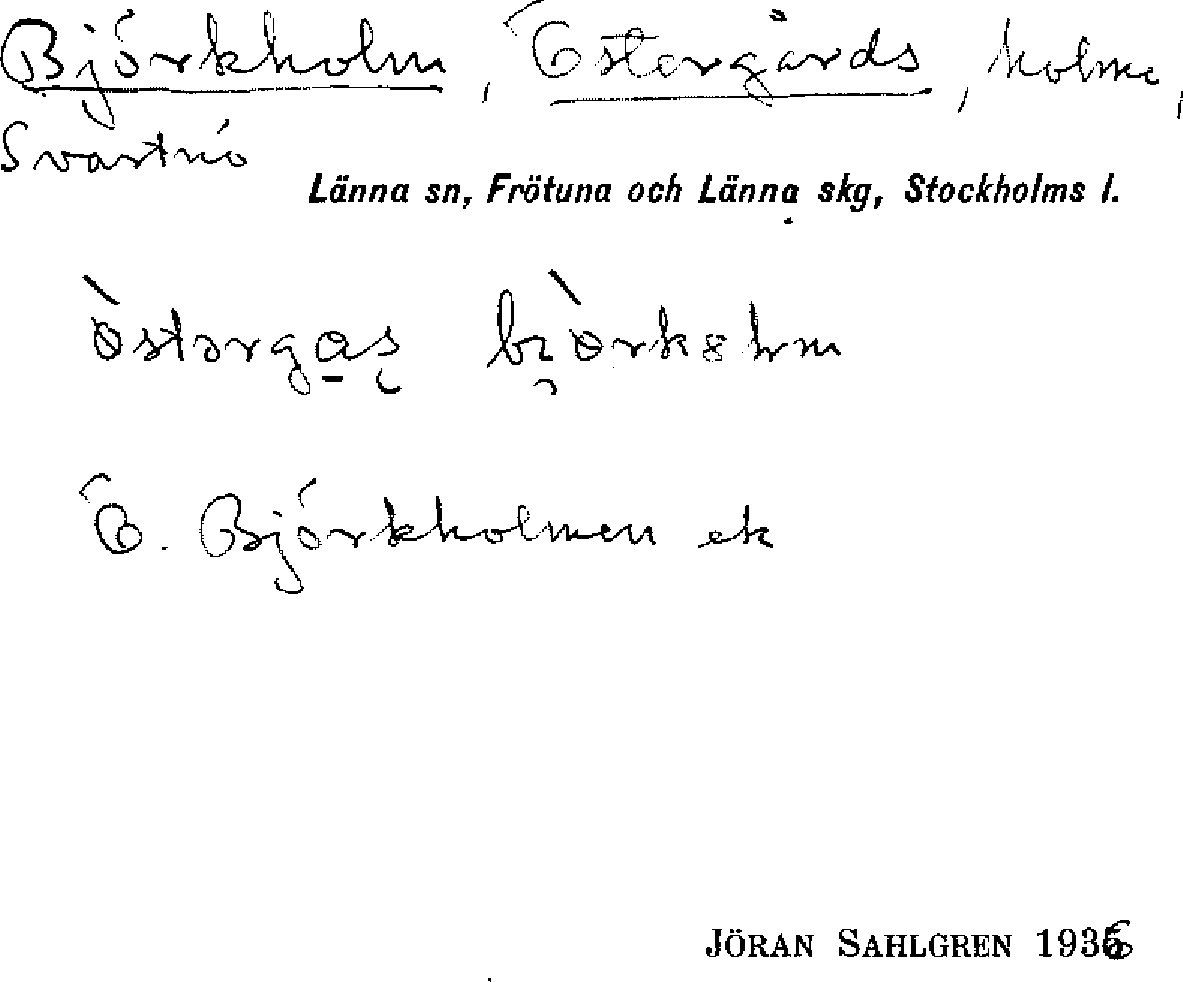 Björkholm, Östergårds, holme,
Svartnö
Länna sn, Frötuna och Länna skg, Stockholms l.
Ö. Björkholmen ek
JÖRAN SAHLGREN 1936